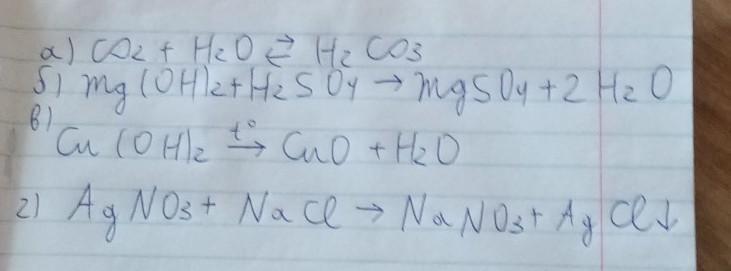 а) CO2 + H2O ⇄ H2CO3
б) Mg(OH)2 + H2SO4 → MgSO4 + 2H2O
в)
Cu(OH)2 t°→ CuO + H2O
г) AgNO3 + NaCl → NaNO3 + AgCl↓